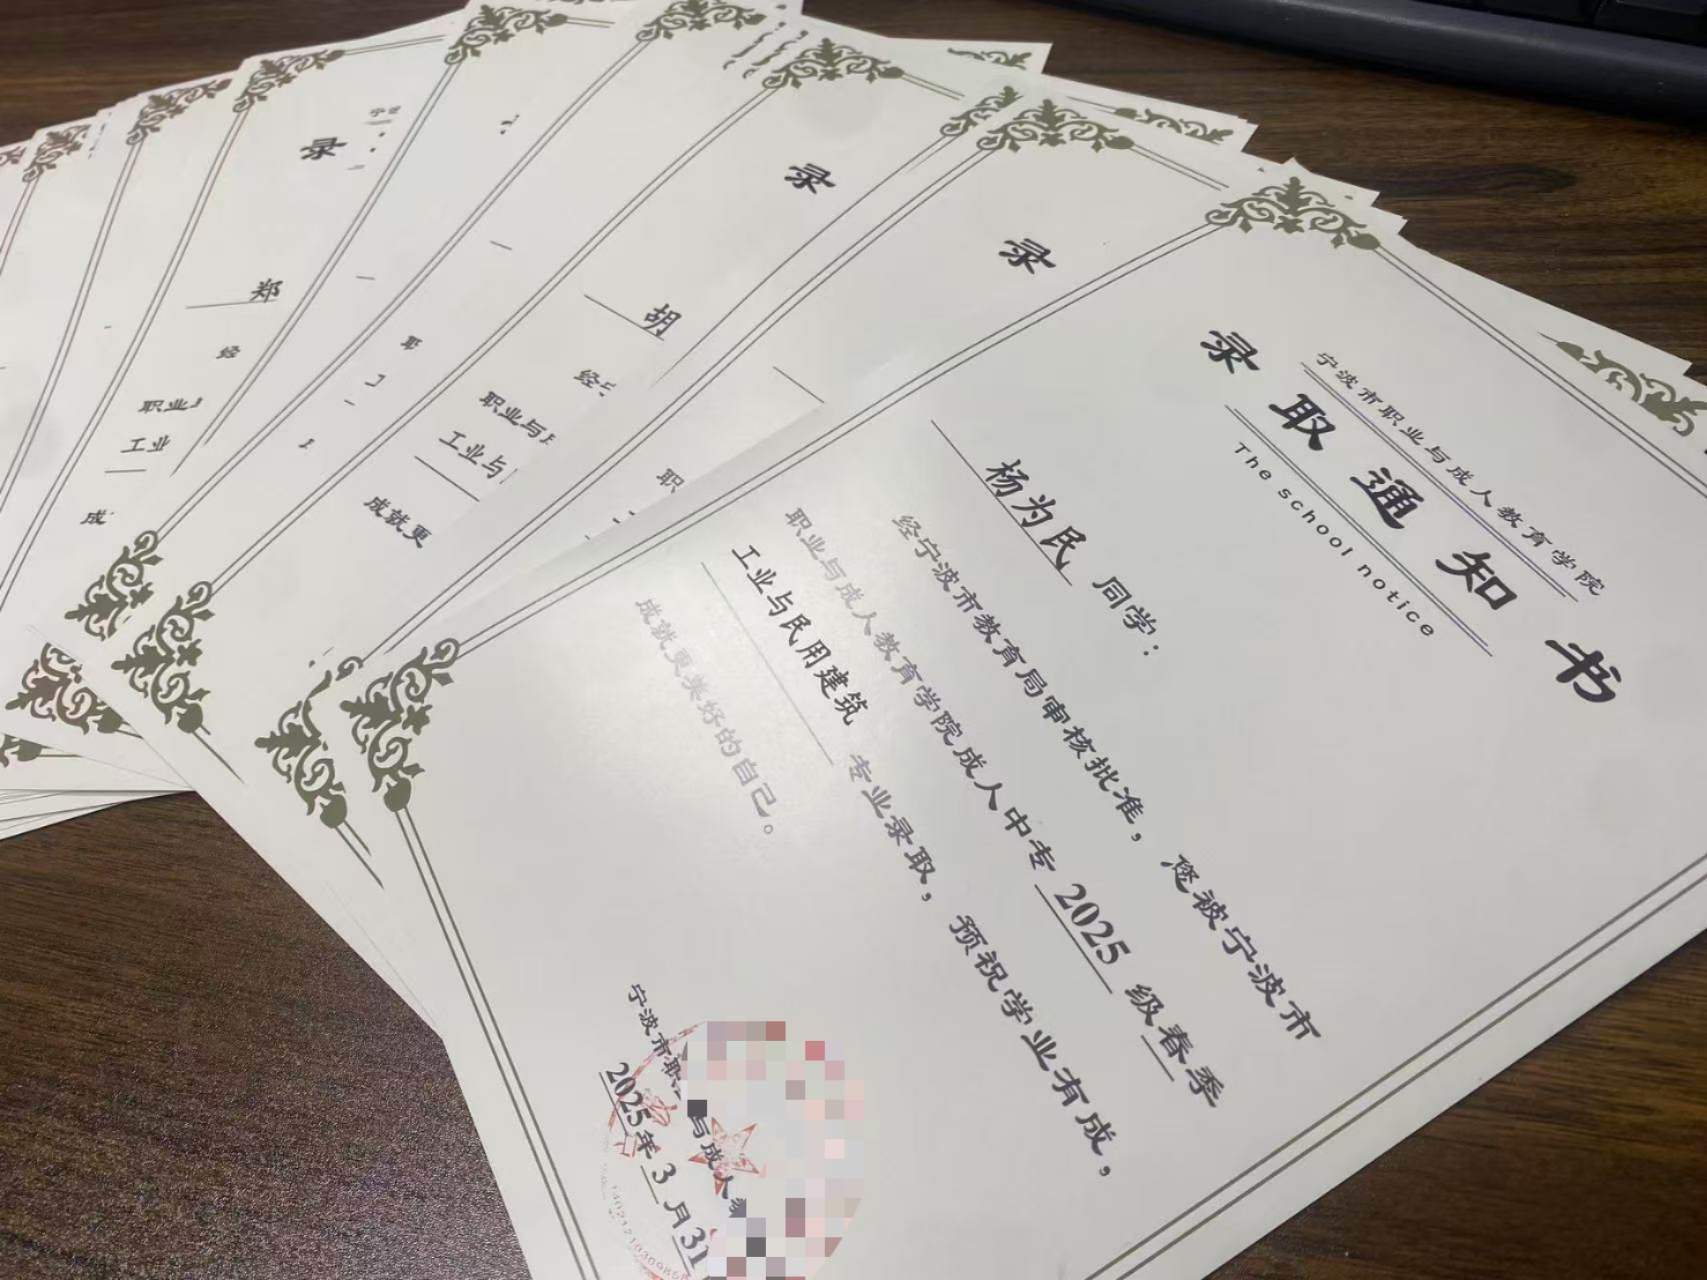 宁波市职业与成人教育学院
录取通知书
The school notice
杨为民 同学：
经宁波市教育局审核批准，您被宁波市
职业与成人教育学院成人中专 2025 级春季
工业与民用建筑 专业录取，预祝学业有成，
成就更美好的自己。
宁波市职
与成人
2025年3月31
录
录
胡
职业与
工业与
成就更
职
录
郑
经
职业
工业
成